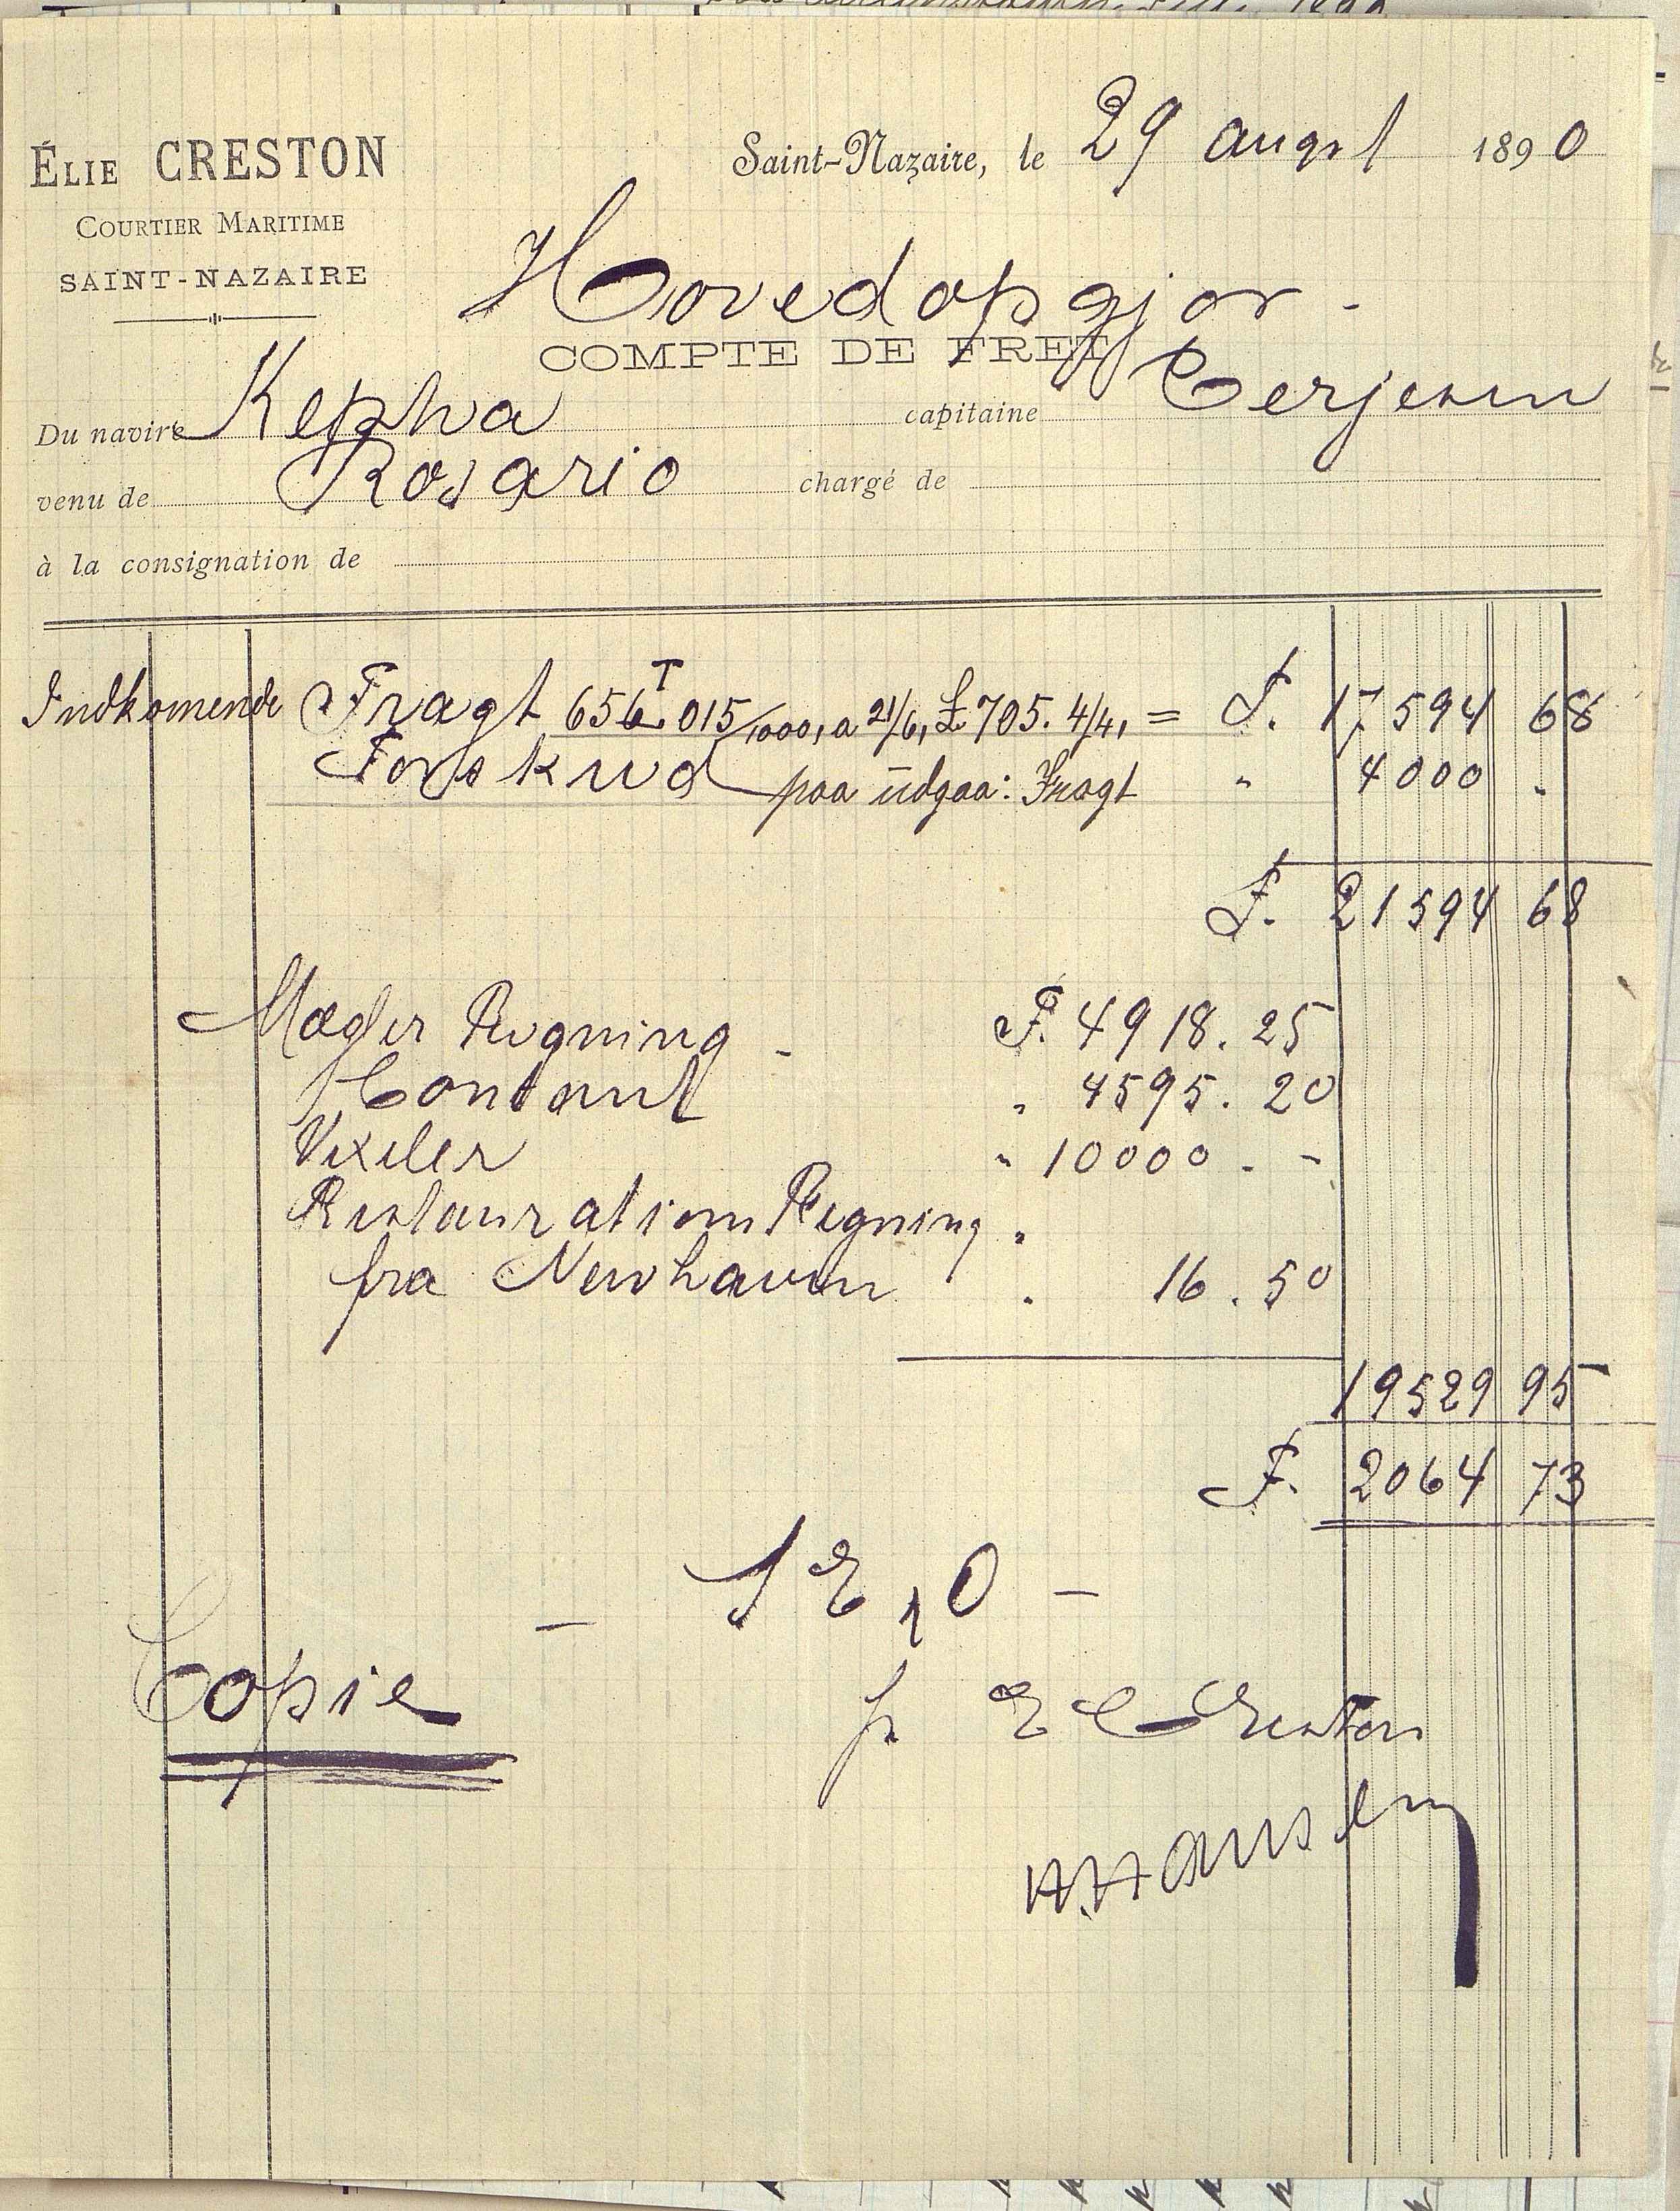 ÉLIE CRESTON
COURTIER MARITIME
SAINT-NAZAIRE
Saint-Nazaire, le 29 augst 1890
Hovedopgjør -
COMPTE DE FRET
Du navire Kepha capitaine Terjesen
venu de Rosario chargé de
à la consignation de
Indkomende Fragt 656T.015/1000, a 21/6, £ 705. 4/4, = F. 17594 68
Forskud paa udgaa: Fragt " 4000 "
F. 21594 68
Mægler Regning - F. 4918. 25
Contant " 4595. 20
Vexler " 10000 - -
Restaurations Regning "
fra Newhaven " 16. 50
19529 95
F. 2064 73
- S E, O -
Copie
p E Creston
Hansen